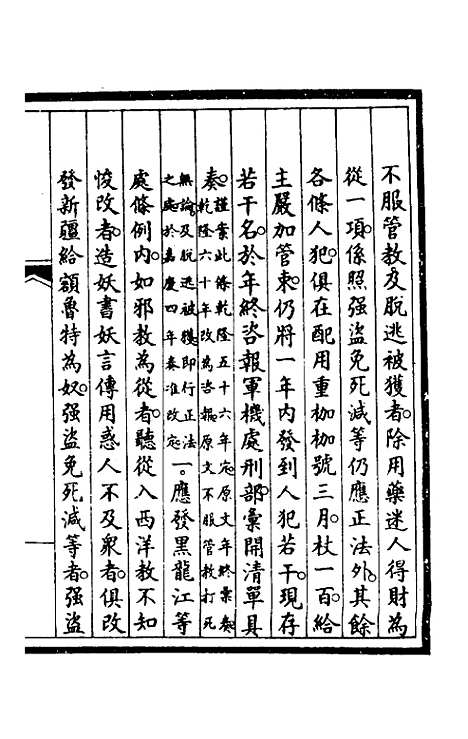 不服管教及脫逃被獲者除用藥迷人得財為
從一項係照强盜免死減等仍應正法外其餘
各條人犯俱在配用重枷枷號三月杖一百給
主嚴加管束仍將一年內發到人犯若干現存
若干名於年終咨報軍機處刑部彙開清單具
奏謹案此條乾隆五十六年定原文年終彙奏
乾隆六十年改為咨報原文不服管教打死
無論及脫逃被獲即行正法
之處於嘉慶四年奏准改定一應發黑龍江等
處條例內如邪教為從者聽從入西洋教不知
悛改者造妖書妖言傳用惑人不及衆者俱改
發新疆給額魯特為奴强盜免死減等者强盜